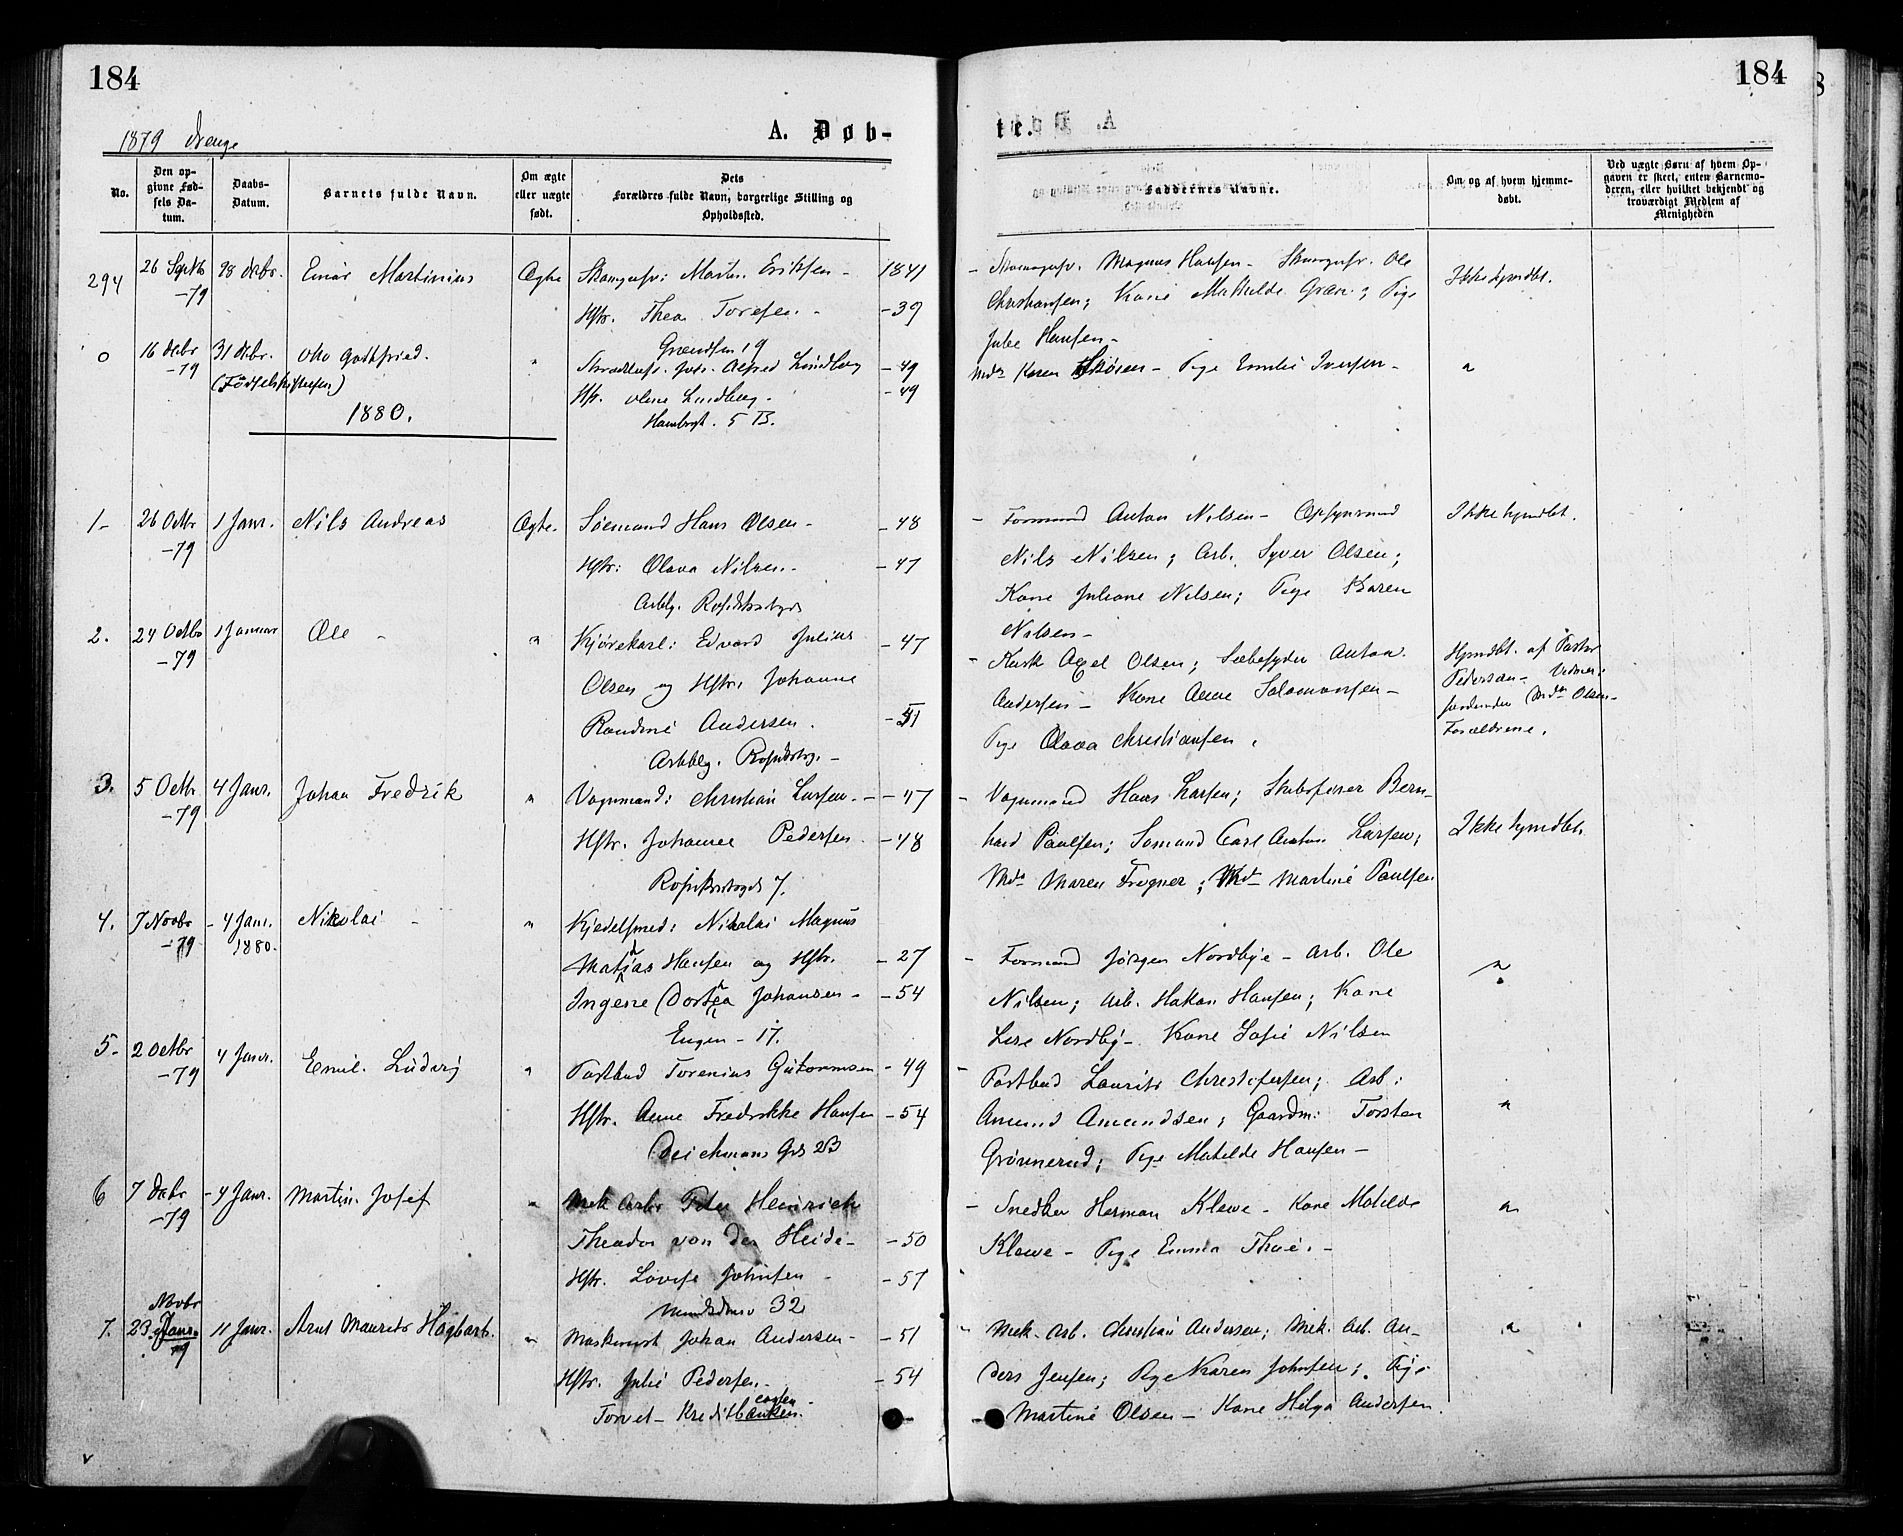 184
184
1879 Drenge
A. Døb-
te.
No.
Den op-
givne Fød-
sels Da-
tum.
Daabs-
Datum.
Barnets fulde Navn.
Om ægte
eller uægte
født.
Dets
Forældres fulde Navn, borgerlige Stilling og
Opholdssted.
Faddernes Navne.
Om og af hvem hjemme-
døbt.
Ved uægte Børn af hvem Op-
gaven er skeet, enten Barnemo-
deren, eller hvilket bekjendt og
troværdigt Medlem af
Menigheden
294
26 Septb
-79
28 decbr.
Einar Martinius
Ægte
Martin Eriksen - 1841
Hstr. Thea Toresen - -39
Grændsen 19
Magnus Hansen - Ole
Christiansen; Kone Mathilde ; Pige
Julie Hansen -
Ikke hjmdbt.
0
16 decbr
-79
31 decbr.
(Fødselsstiftelsen)
Otto Gottfried.
"
Alfred Lindberg -49
Hstr. Oline Lindberg. -49
Hambrgt. 5 B.
Mdm Karen - Pige Emilie Iversen -
"
1880.
1-
26 Octbr
-79
1 Janr.
Nils Andreas
Ægte.
Sømand Hans Olsen - -48
Hstr: Olava Nilsen. - -47
Arbbg.
- Formand Anton Nilsen - Opsynsmand
Nils Nilsen; Arb. Syver Olsen;
Kone Juliane Nilsen; Pige Karen
Nilsen -
Ikke hjmdbt.
2.
24 Octbr
-79
1 Januar
Ole -
"
Kjørekarl: Edvard Julius -47
Olsen og Hstr. Johanne
Randine Andersen. -51
Arbbg.
- Kusk Axel Olsen; Anton
Andersen - Kone Anne Salomonsen -
Pige Olava Christiansen.
Hjmdbt. af Pastor
Pedersen -
Mdm Olsen -
Forældrene.
3.
5 Octbr.
-79
4 Janr.
Johan Fredrik
"
Vognmand: Christian Larsen. - -47
Hstr. Johanne Pedersen. -48
7.
- Vognmand Hans Larsen; Skibsfører Bern-
hard Paulsen; Sømand Carl Anton Larsen;
Mdm Maren Frogner; Mdm Martine Paulsen
Ikke hjmdbt.
4.
7 Novbr
-79
- 4 Janr.
1880.
Nikolai -
"
Kjedelsmed: Nikolai Magnus
Mathias Hansen og Hstr. -27
Ingene Dorthea Johansen - -54
Engen - 17.
- Formand Jørgen Nordbye - Arb. Ole
Nilsen; Arb. Hakon Hansen; Kone
Lise Nordby - Kone Sofie Nilsen
"
5.
2 Octbr
-79
4 Janr.
Emil Ludvig
"
Postbud Torenius Guttormsen -49
Hstr. Anne Fredrikke Hansen -54
Deichmans Gd 23
- Postbud Laurits Christofersen; Arb:
Amund Amundsen; Gaardm: Torsten
Grønnerud; Pige Matilde Hansen -
"
6
7 decbr
-79
- 4 Janr.
Martin Josef
"
Mek Arb: Peter Heinrich
Theodor von der Heide - -50
Hstr. Lovise Johnsen - -57
32
- Snedker Herman Klewe - Kone Matilde
Klewe - Pige Emma
"
7.
Novbr
23 Janr.
79
11 Janr.
Arnt Maurits Hagbart.
"
Maskinist Johan Andersen - -51
Hstr. Julie Pedersen. - -54
Torvet - Kreditbanken.
- Mek. Arb. Christian Andersen; Mek. Arb. An-
ders Jensen; Pige Karen Johnsen; Pige
Martine Olsen - Kone Helga Andersen.
"